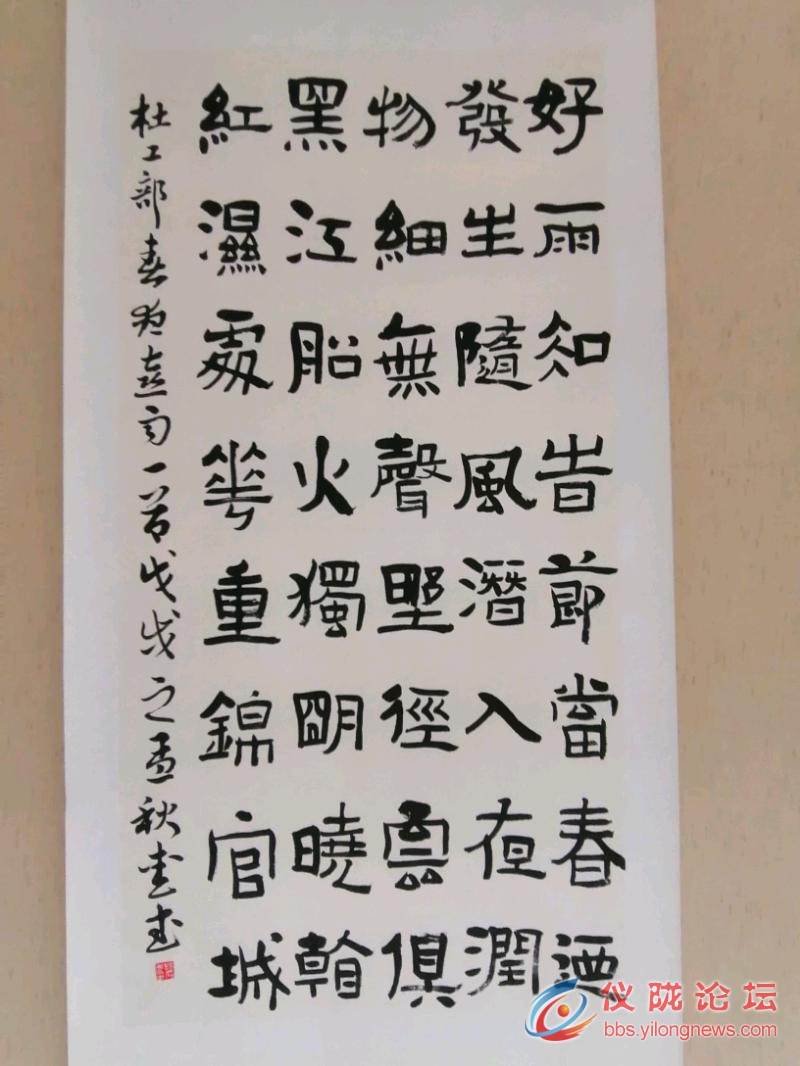 好雨知旹節當春迺
發生隨風潛入夜潤
物細無聲野徑雲俱
黑江船火獨朙曉看
紅濕處華重錦官城
杜工部春夜喜雨一首戊戌之孟秋書
仪陇论坛
bbs.yilongnews.com